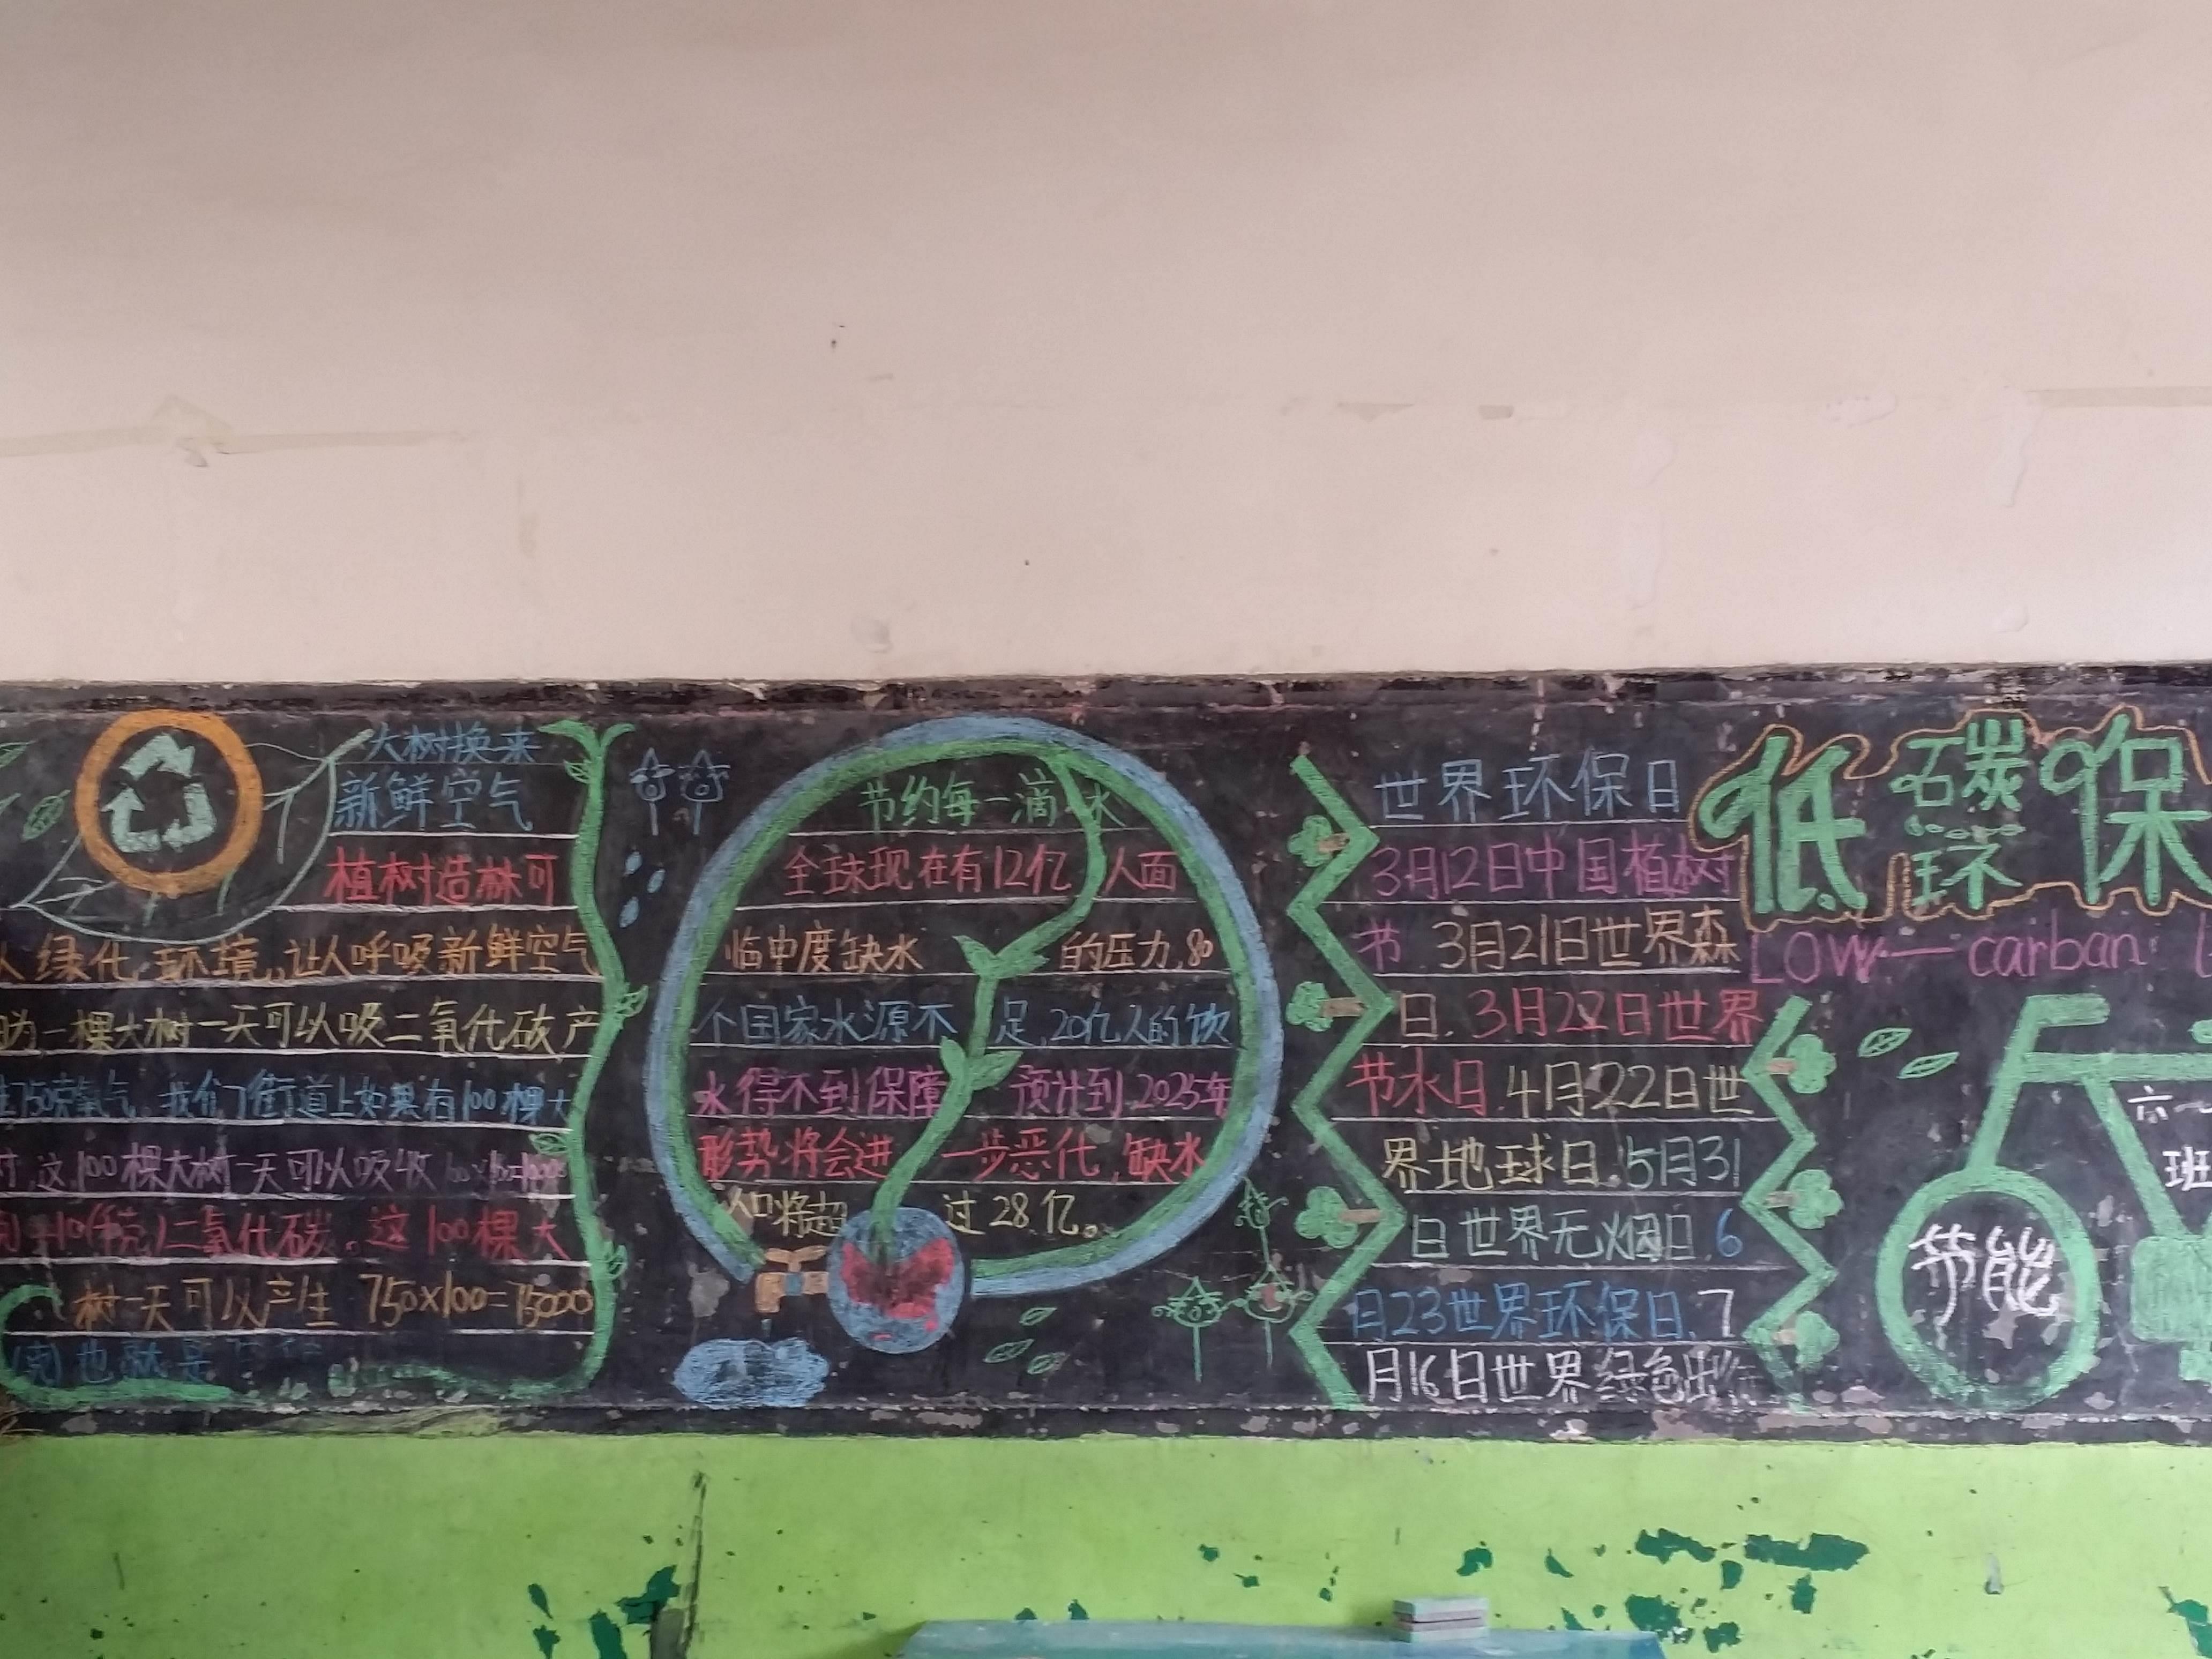 大树换来
新鲜空气
植树造林可
人绿化环境,让人呼吸新鲜空气
一棵大树一天可以吸二氧化碳产
750克氧气,我们街道上如果有100棵大
树,这100棵大树一天可以吸收
二氧化碳。这100棵大
树一天可以产生 750×100=75000
(克)也就是
节约每一滴水
全球现在有12亿人面
临中度缺水的压力,80
个国家水源不足,20亿人的饮
水得不到保障 预计到2025年
形势将会进一步恶化,缺水
人口将超过28亿。
世界环保日
3月12日中国植树
节 3月21日世界森
日.3月22日世界
节水日.4月22日世
界地球日.5月31
日世界无烟日.6
月23世界环保日.7
月16日世界绿色出行
低碳环保
Low—carban
六一
班
节能